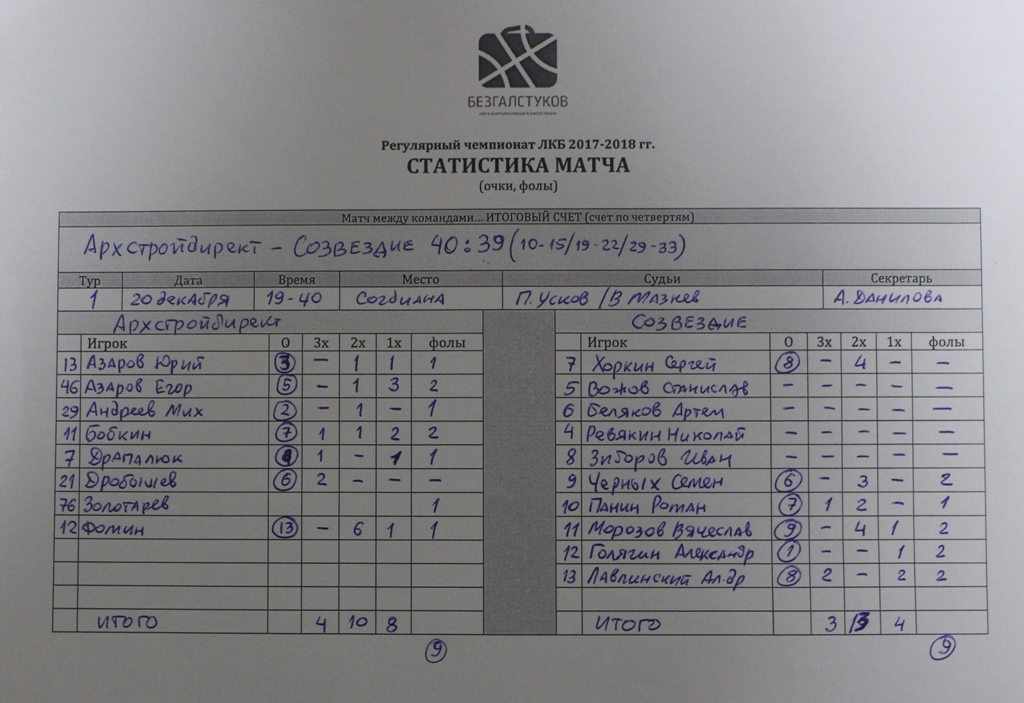 БЕЗГАЛСТУКОВ
Регулярный чемпионат ЛКБ 2017-2018 гг.
СТАТИСТИКА МАТЧА
(очки, фолы)
Матч между командами... ИТОГОВЫЙ СЧЕТ (счет по четвертям)
Архстройдирект - Созвездие 40:39 (10-15/19-22/29-33)
Тур Дата Время Место Судьи Секретарь
1 20 декабря 19-40 Согдиана П. Усков /В Мазнев А. Данилова
Архстройдирект Созвездие
Игрок О 3х 2х 1х фолы Игрок О 3х 2х 1х фолы
13 Азаров Юрий 3 – 1 1 1 7 Хоркин Сергей 8 – 4 – –
46 Азаров Егор 5 – 1 3 2 5 Вожов Станислав – – – – –
29 Андреев Мих 2 – 1 – 1 6 Беляков Артем – – – – –
11 Бобкин 7 1 1 2 2 4 Ревякин Николай – – – – –
7 Драпалюк 4 1 – 1 1 8 Зиборов Иван – – – – –
21 Дробышев 6 2 – – – 9 Черных Семен 6 – 3 – 2
76 Золотарев 1 10 Панин Роман 7 1 2 – 1
12 Фомин 13 – 6 1 1 11 Морозов Вячеслав 9 – 4 1 2
12 Голягин Александр 1 – – 1 2
13 Лавлинский Ал-др 8 2 – 2 2
ИТОГО 4 10 8 ИТОГО 3 13 4
9 9